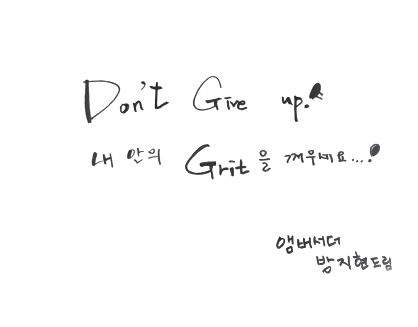 Don't Give up!
내 안의 Grit을 깨우세요...!
앰버서더
방지현드림